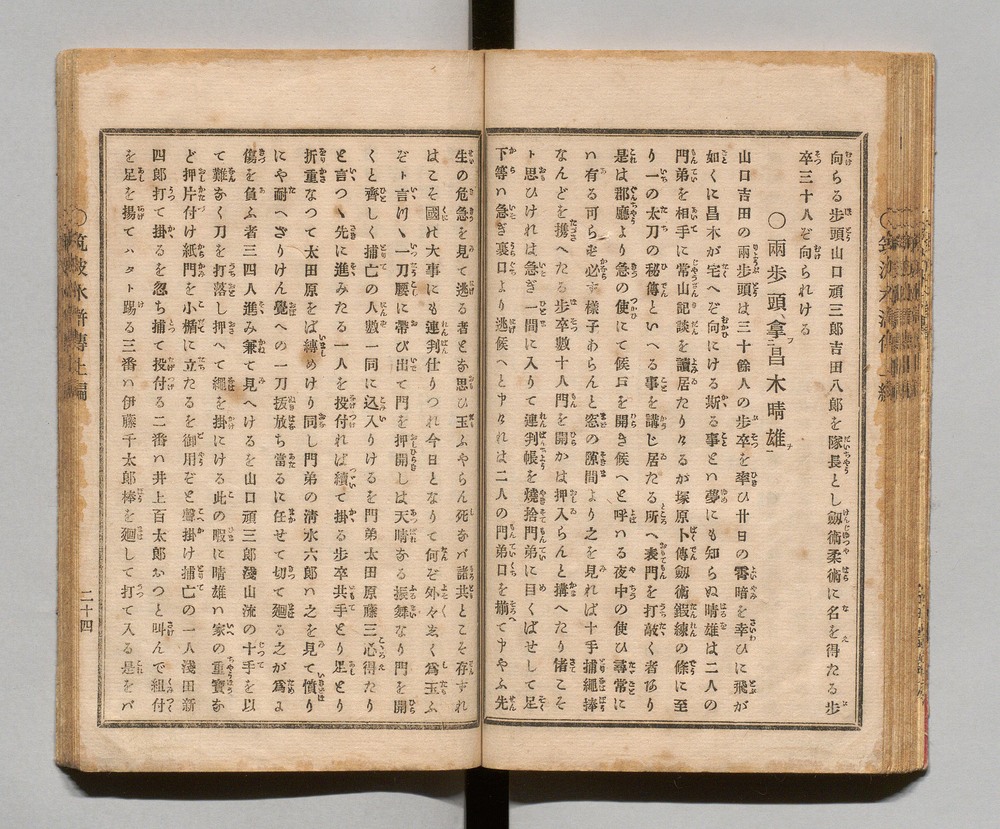 向らる歩頭山口頑三郎吉田八郎を隊長とし劔術柔術に名を得たる歩
卒三十人ぞ向られける
〇兩歩頭拿昌木晴雄
山口吉田の兩歩頭は三十餘人の歩卒を率ひ廿日の霄暗を幸ひに飛が
如くに昌木が宅へぞ向にける斯る事とハ夢にも知らぬ晴雄は二人の
門弟を相手に常山記談を讀居たりけるが塚原卜傳劔術鍛練の條に至
り一の太刀の秘傳といへる事を講じ居たる所へ表門を打敲く者あり
是は郡廳より急の使にて候戸を開き候へと呼ハる夜中の使ひ尋常に
ハ有る可らず必す樣子あらんと窓の隙間より之を見れば十手捕繩捧
なんどを携へたる歩卒數十人門を開かは押入らんと搆へたり偖こそ
ト思ひけれは急ぎ一間に入りて連判帳を燒捨門弟に目くばせして足
下等ハ急ぎ裏口より逃候へと申けれは二人の門弟口を揃て申やふ先
生の危急を見て逃る者とお思ひ玉ふやらん死なバ諸共とこそ存すれ
はこそ國の大事にも連判仕りつれ今日となりて何ぞ外々しく爲玉ふ
ぞト言けれバ一刀腰に帶び出て門を押開しは天晴なる振舞なり門を開
くと齊しく捕亡の人數一同に込入りけるを門弟太田原藤三心得たり
と言つゝ先に進みたる一人を投付れば續て掛る歩卒共手とり足とり
折重なつて太田原をば縛めけり同し門弟の清水六郎ハ之を見て憤り
にや耐へざりけん覺への一刀拔放ち當るに任せて切て廻る之が爲よ
傷を負ふ者三四人進み兼て見へけるを山口頑三郎淺山流の十手を以
て難なく刀を打落し押へて繩を掛にける此の暇に晴雄ハ家の重寳な
ど押片付け紙門を小楯に立たるを御用ぞと聲掛け捕亡の一人淺田新
四郎打て掛るを忽ち捕て投付る二番ハ井上百太郎おつと叫んで組付
を足を揚てハタト踢る三番ハ伊藤千太郎棒を廻して打て入る是をバ
二十四
筑波水滸傳上編